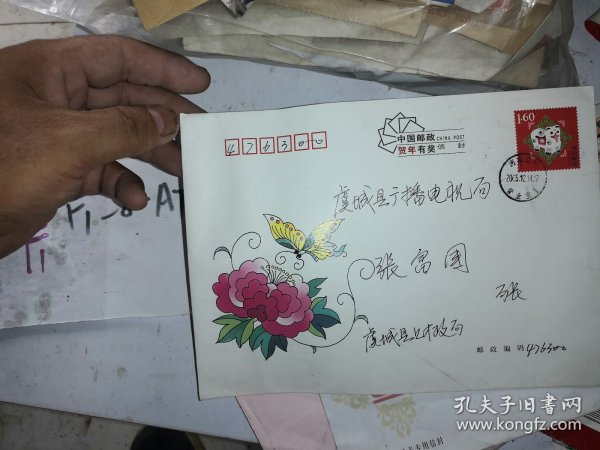 476300
中国邮政 CHINA POST
贺年有奖 信 封
1.60
虞城县广播电视局
張富国
张
虞城县
邮政编码 476300
F1-8 A
F1
专用信封
孔夫子旧书网
www.kongfz.com